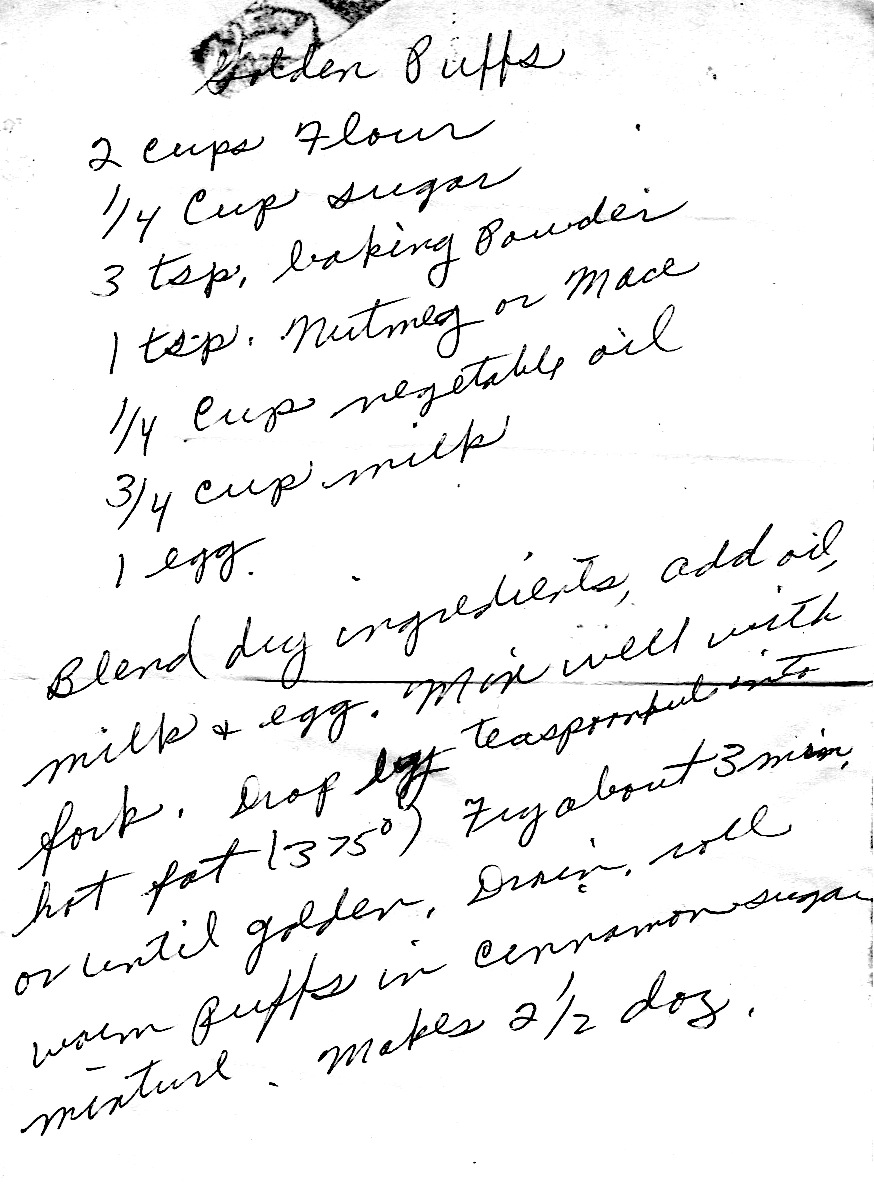 Golden Puffs
2 cups Flour
1/4 Cup sugar
3 tsp. baking Powder
1 tsp. Nutmeg or Mace
1/4 Cup vegetable oil
3/4 cup milk
1 egg.
Blend dry ingredients, add oil,
milk & egg. Mix well with
fork. Drop by teaspoonful into
hot fat (375°) Fry about 3 min.
or until golden. Drain. roll
warm Puffs in cinnamon sugar
mixture. Makes 2 1/2 doz.